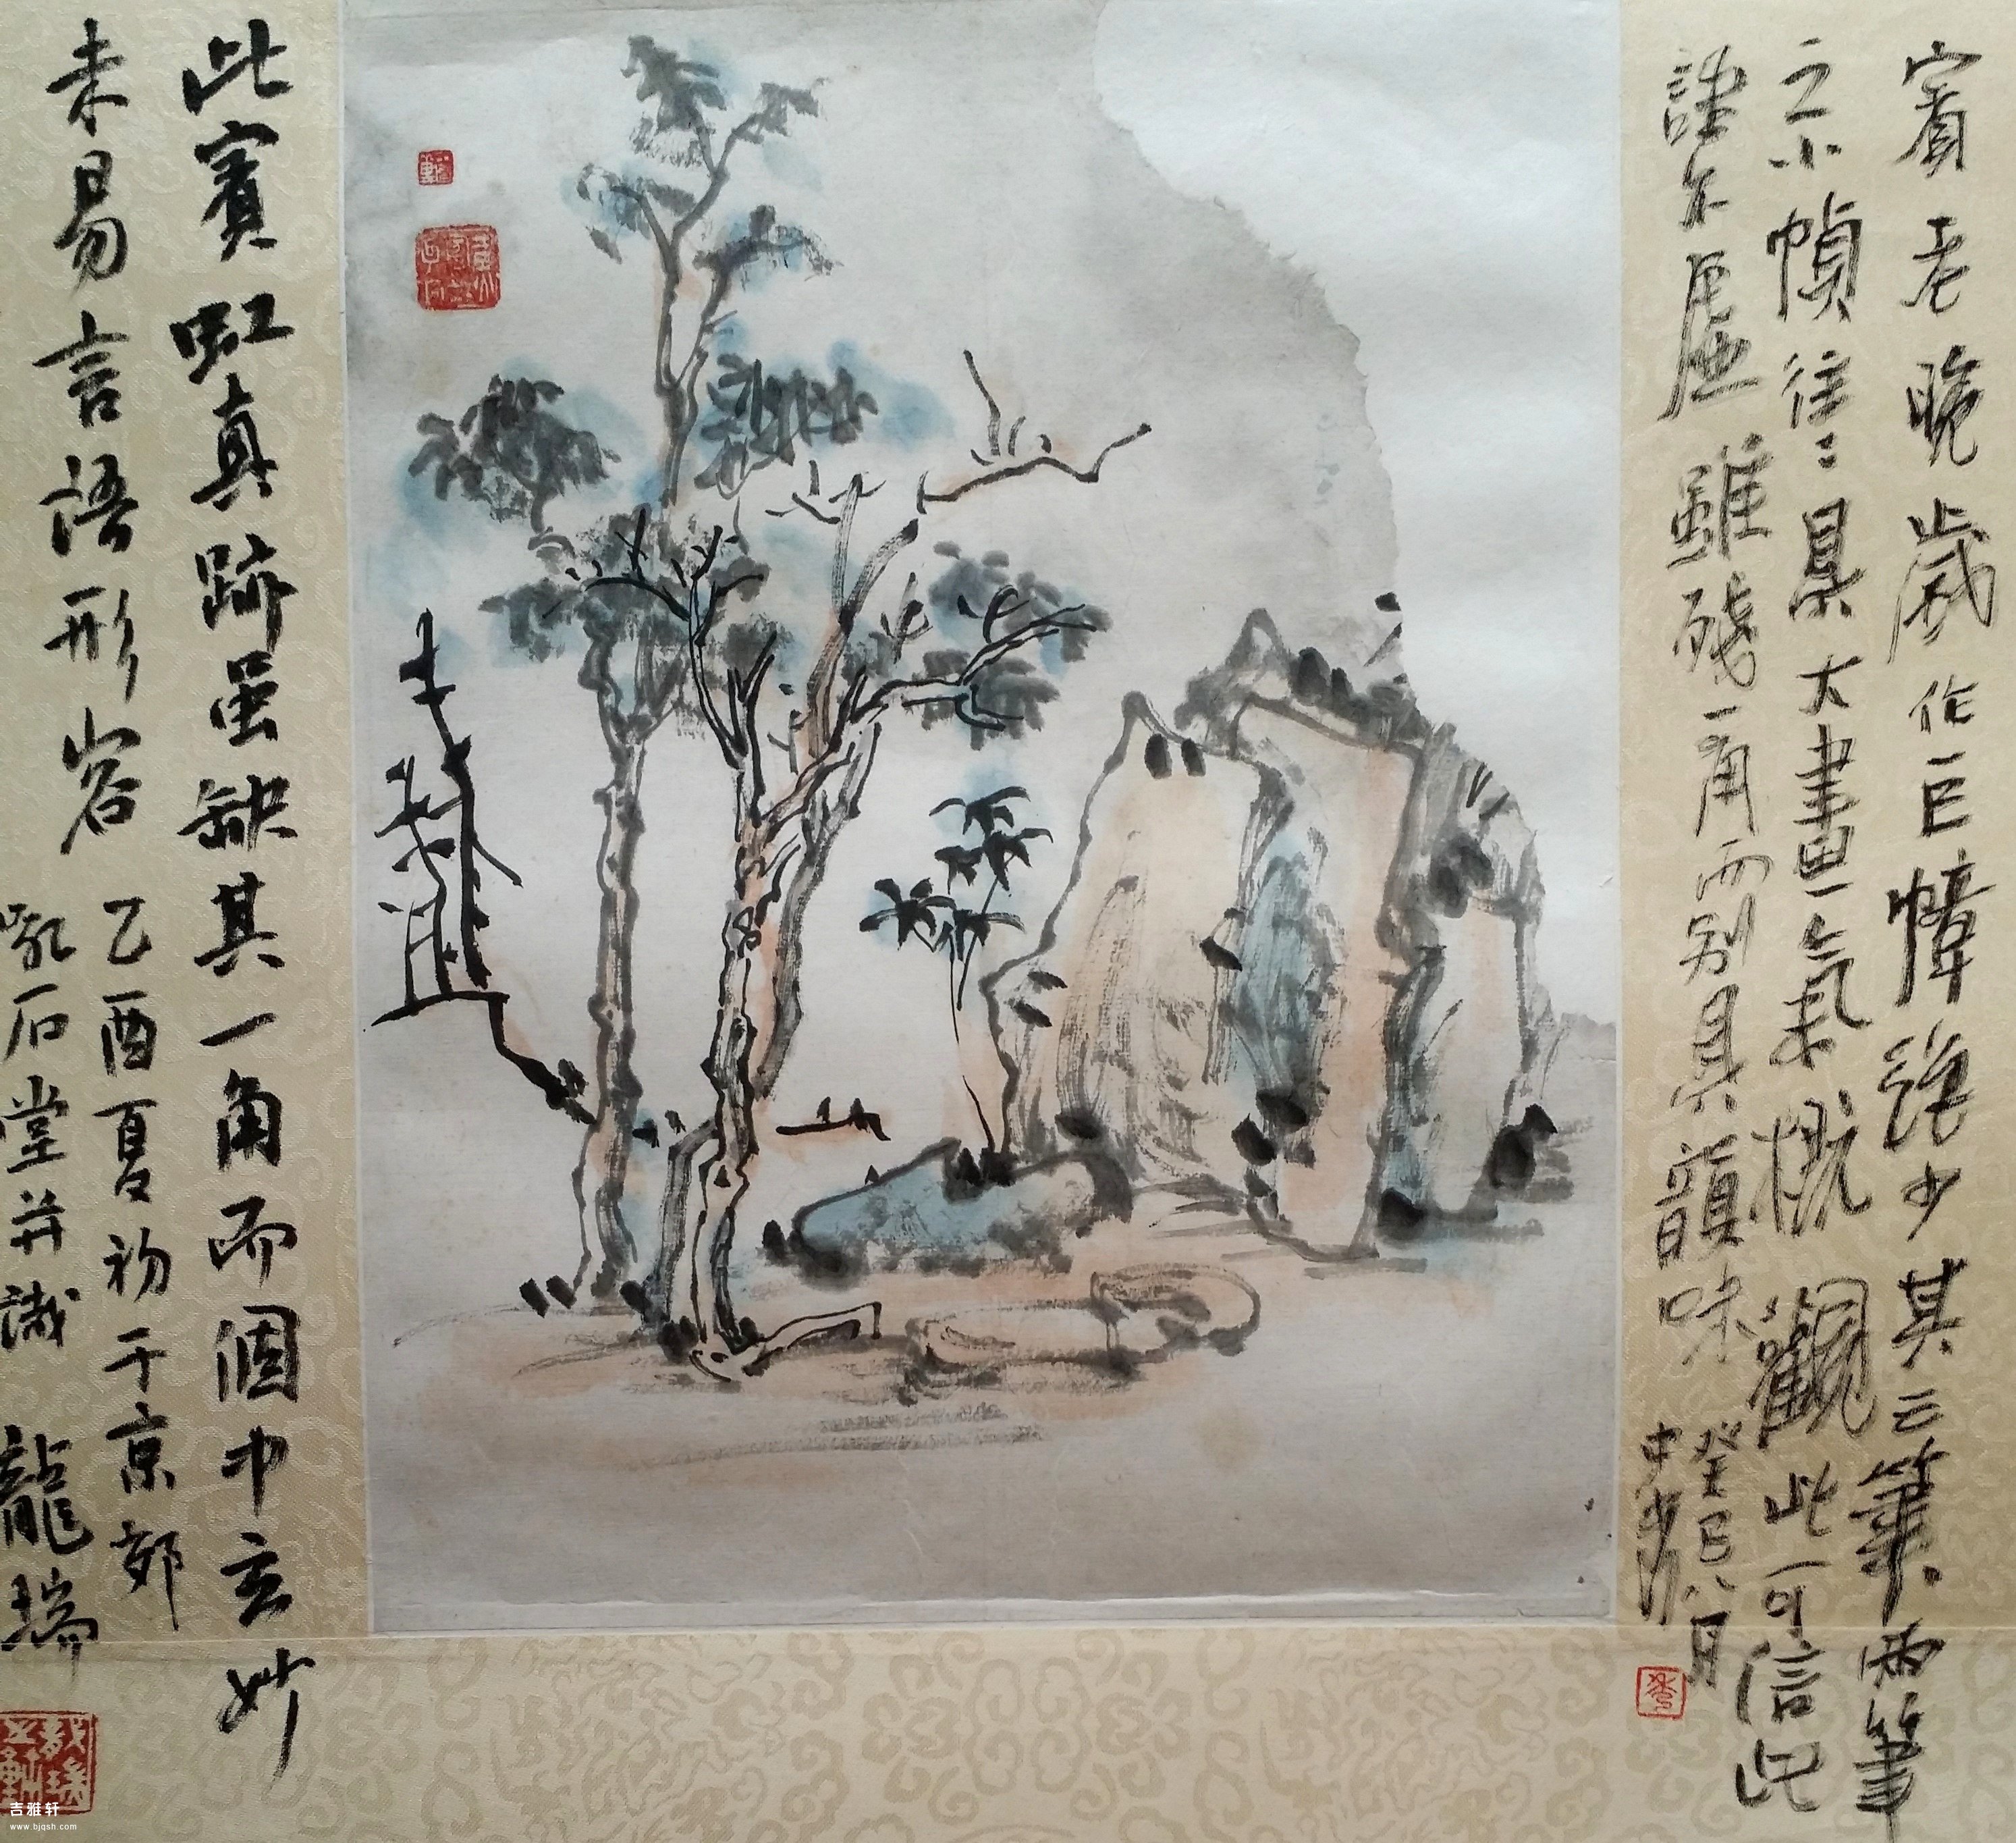 賓老晚歲作巨幛絕少其三筆兩筆
之小幀往〻具大畫氣概觀此可信此
語不虛 雖殘一角而別具韻味
癸巳八月
此賓虹真跡虽缺其一角而個中玄妙
未易言語形容 乙酉夏初于京郊
石堂并識 龍瑞
吉雅轩
www.bjqsh.com